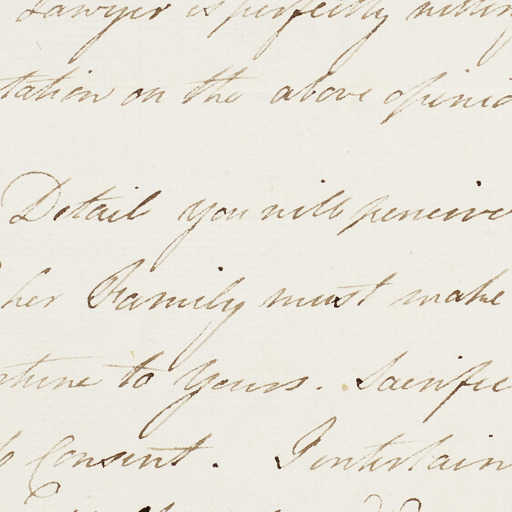 Lawyer is perfectly willing
tation on the above opinio
Detail you will perceive
her Family must make
rtune to Yours. Sacrifice
to Consent. I entertain